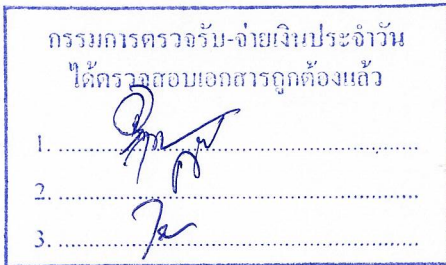 กรรมการตรวจรับ-จ่ายเงินประจำวัน
ได้ตรวจสอบเอกสารถูกต้องแล้ว
1. ............................................................
2. ............................................................
3. ............................................................